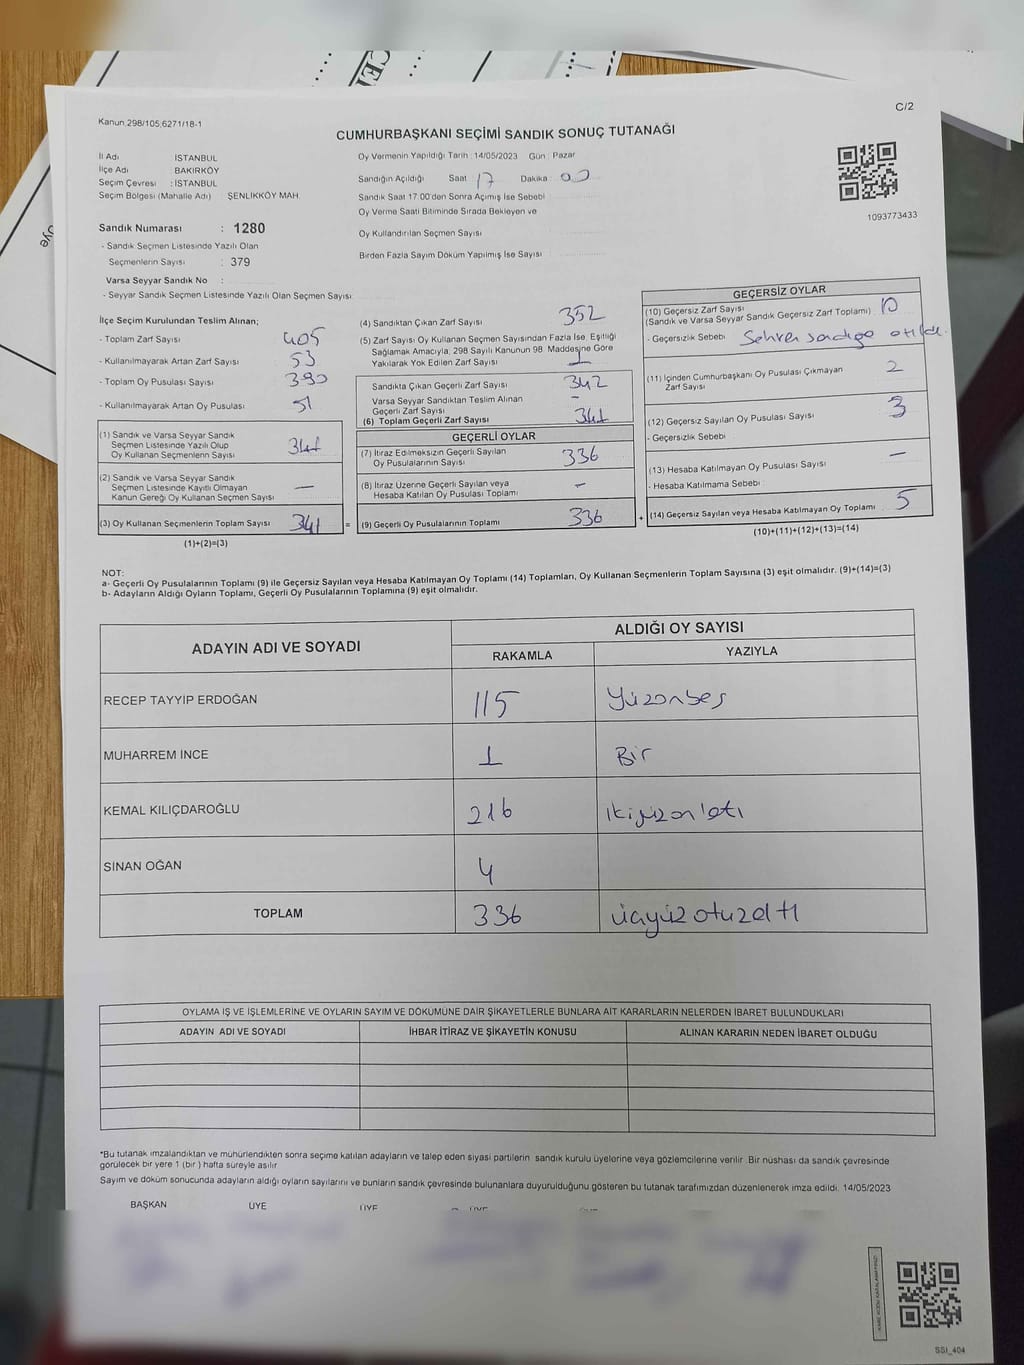 C/2
Kanun 298/105,6271/18-1
CUMHURBAŞKANI SEÇİMİ SANDIK SONUÇ TUTANAĞI
İl Adı İSTANBUL
İlçe Adı BAKIRKÖY
Seçim Çevresi : İSTANBUL
Seçim Bölgesi (Mahalle Adı) : ŞENLİKKÖY MAH.
Sandık Numarası : 1280
- Sandık Seçmen Listesinde Yazılı Olan
Seçmenlerin Sayısı : 379
Varsa Seyyar Sandık No :
- Seyyar Sandık Seçmen Listesinde Yazılı Olan Seçmen Sayısı:
Oy Vermenin Yapıldığı Tarih : 14/05/2023 Gün : Pazar
Sandığın Açıldığı Saat 17 Dakika 00
Sandık Saat 17:00'den Sonra Açımış İse Sebebi
Oy Verme Saati Bitiminde Sırada Bekleyen ve
Oy Kullandırılan Seçmen Sayısı
Birden Fazla Sayım Döküm Yapılmış İse Sayısı
1093773433
İlçe Seçim Kurulundan Teslim Alınan;
- Toplam Zarf Sayısı 405
- Kullanılmayarak Artan Zarf Sayısı 53
- Toplam Oy Pusulası Sayısı 390
- Kullanılmayarak Artan Oy Pusulası 51
(1) Sandık ve Varsa Seyyar Sandık
Seçmen Listesinde Yazılı Olup
Oy Kullanan Seçmenlerin Sayısı 341
(2) Sandık ve Varsa Seyyar Sandık
Seçmen Listesinde Kayıtlı Olmayan
Kanun Gereği Oy Kullanan Seçmen Sayısı —
(3) Oy Kullanan Seçmenlerin Toplam Sayısı 341 =
(1)+(2)=(3)
(4) Sandıktan Çıkan Zarf Sayısı 352
(5) Zarf Sayısı Oy Kullanan Seçmen Sayısından Fazla İse, Eşitliği
Sağlamak Amacıyla, 298 Sayılı Kanunun 98. Maddesine Göre
Yakılarak Yok Edilen Zarf Sayısı 1
Sandıkta Çıkan Geçerli Zarf Sayısı 342
Varsa Seyyar Sandıktan Teslim Alınan
Geçerli Zarf Sayısı -
(6) Toplam Geçerli Zarf Sayısı 341
GEÇERLİ OYLAR
(7) İtiraz Edilmeksizin Geçerli Sayılan
Oy Pusulalarının Sayısı 336
(8) İtiraz Üzerine Geçerli Sayılan veya
Hesaba Katılan Oy Pusulası Toplamı -
(9) Geçerli Oy Pusulalarının Toplamı 336 +
GEÇERSİZ OYLAR
(10) Geçersiz Zarf Sayısı
(Sandık ve Varsa Seyyar Sandık Geçersiz Zarf Toplamı) 10
- Geçersizlik Sebebi Sehven sandığa atıldı.
(11) İçinden Cumhurbaşkanı Oy Pusulası Çıkmayan
Zarf Sayısı 2
(12) Geçersiz Sayılan Oy Pusulası Sayısı 3
- Geçersizlik Sebebi
(13) Hesaba Katılmayan Oy Pusulası Sayısı —
- Hesaba Katılmama Sebebi
(14) Geçersiz Sayılan veya Hesaba Katılmayan Oy Toplamı 5
(10)+(11)+(12)+(13)=(14)
NOT:
a- Geçerli Oy Pusulalarının Toplamı (9) ile Geçersiz Sayılan veya Hesaba Katılmayan Oy Toplamı (14) Toplamları, Oy Kullanan Seçmenlerin Toplam Sayısına (3) eşit olmalıdır. (9)+(14)=(3)
b- Adayların Aldığı Oyların Toplamı, Geçerli Oy Pusulalarının Toplamına (9) eşit olmalıdır.
ADAYIN ADI VE SOYADI ALDIĞI OY SAYISI
RAKAMLA YAZIYLA
RECEP TAYYİP ERDOĞAN 115 Yüzonbeş
MUHARREM İNCE 1 Bir
KEMAL KILIÇDAROĞLU 216 ikiyüzon'altı
SİNAN OĞAN 4
TOPLAM 336 üçyüzotuzaltı
OYLAMA İŞ VE İŞLEMLERİNE VE OYLARIN SAYIM VE DÖKÜMÜNE DAİR ŞİKAYETLERLE BUNLARA AİT KARARLARIN NELERDEN İBARET BULUNDUKLARI
ADAYIN ADI VE SOYADI İHBAR İTİRAZ VE ŞİKAYETİN KONUSU ALINAN KARARIN NEDEN İBARET OLDUĞU
*Bu tutanak imzalandıktan ve mühürlendikten sonra seçime katılan adayların ve talep eden siyasi partilerin sandık kurulu üyelerine veya gözlemcilerine verilir. Bir nüshası da sandık çevresinde
görülecek bir yere 1 (bir ) hafta süreyle asılır
Sayım ve döküm sonucunda adayların aldığı oyların sayılarını ve bunların sandık çevresinde bulunanlara duyurulduğunu gösteren bu tutanak tarafımızdan düzenlenerek imza edildi. 14/05/2023
BAŞKAN ÜYE ÜYE ÜYE
SSI_404